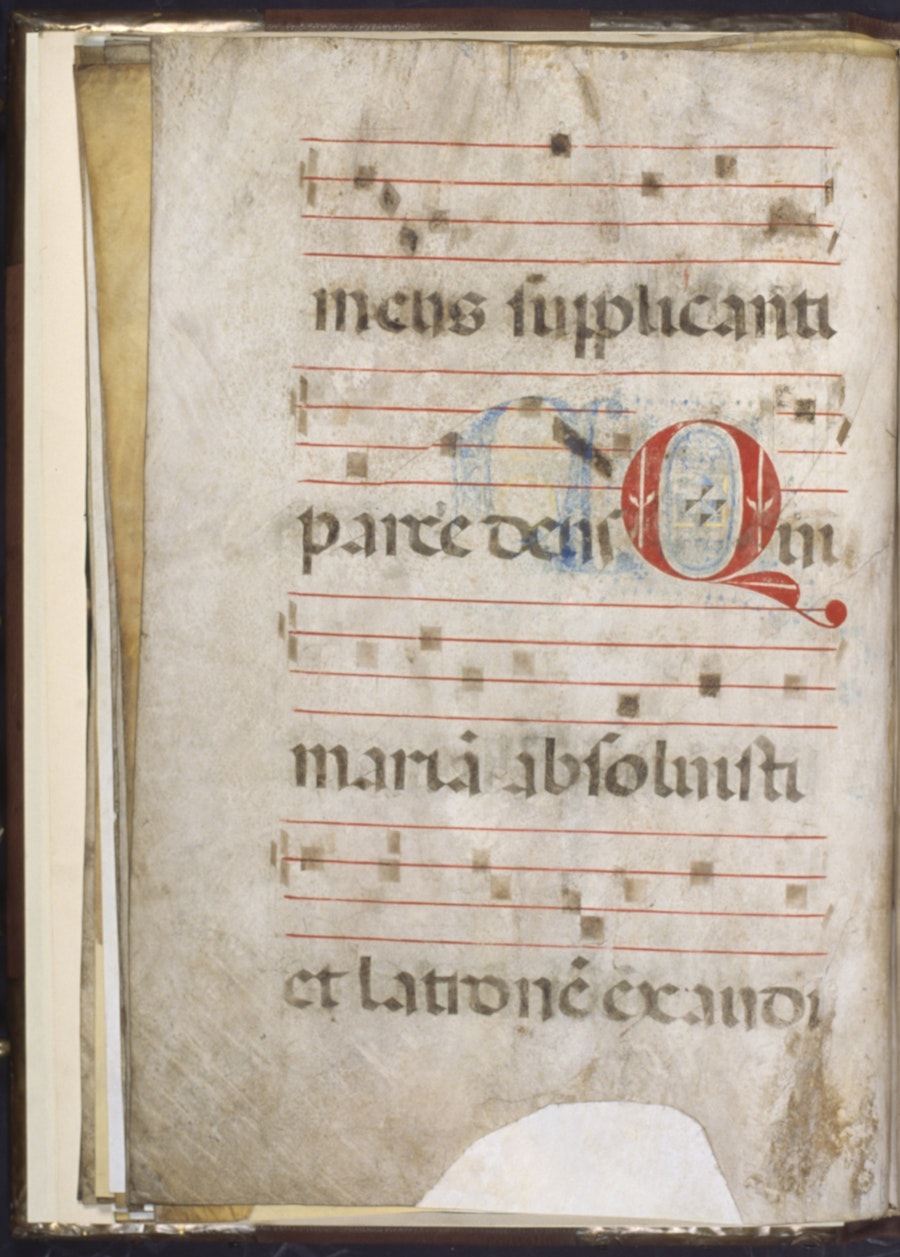 meus supplicanti
parce deus Qui
mariā absoluisti
et latronē exaudi